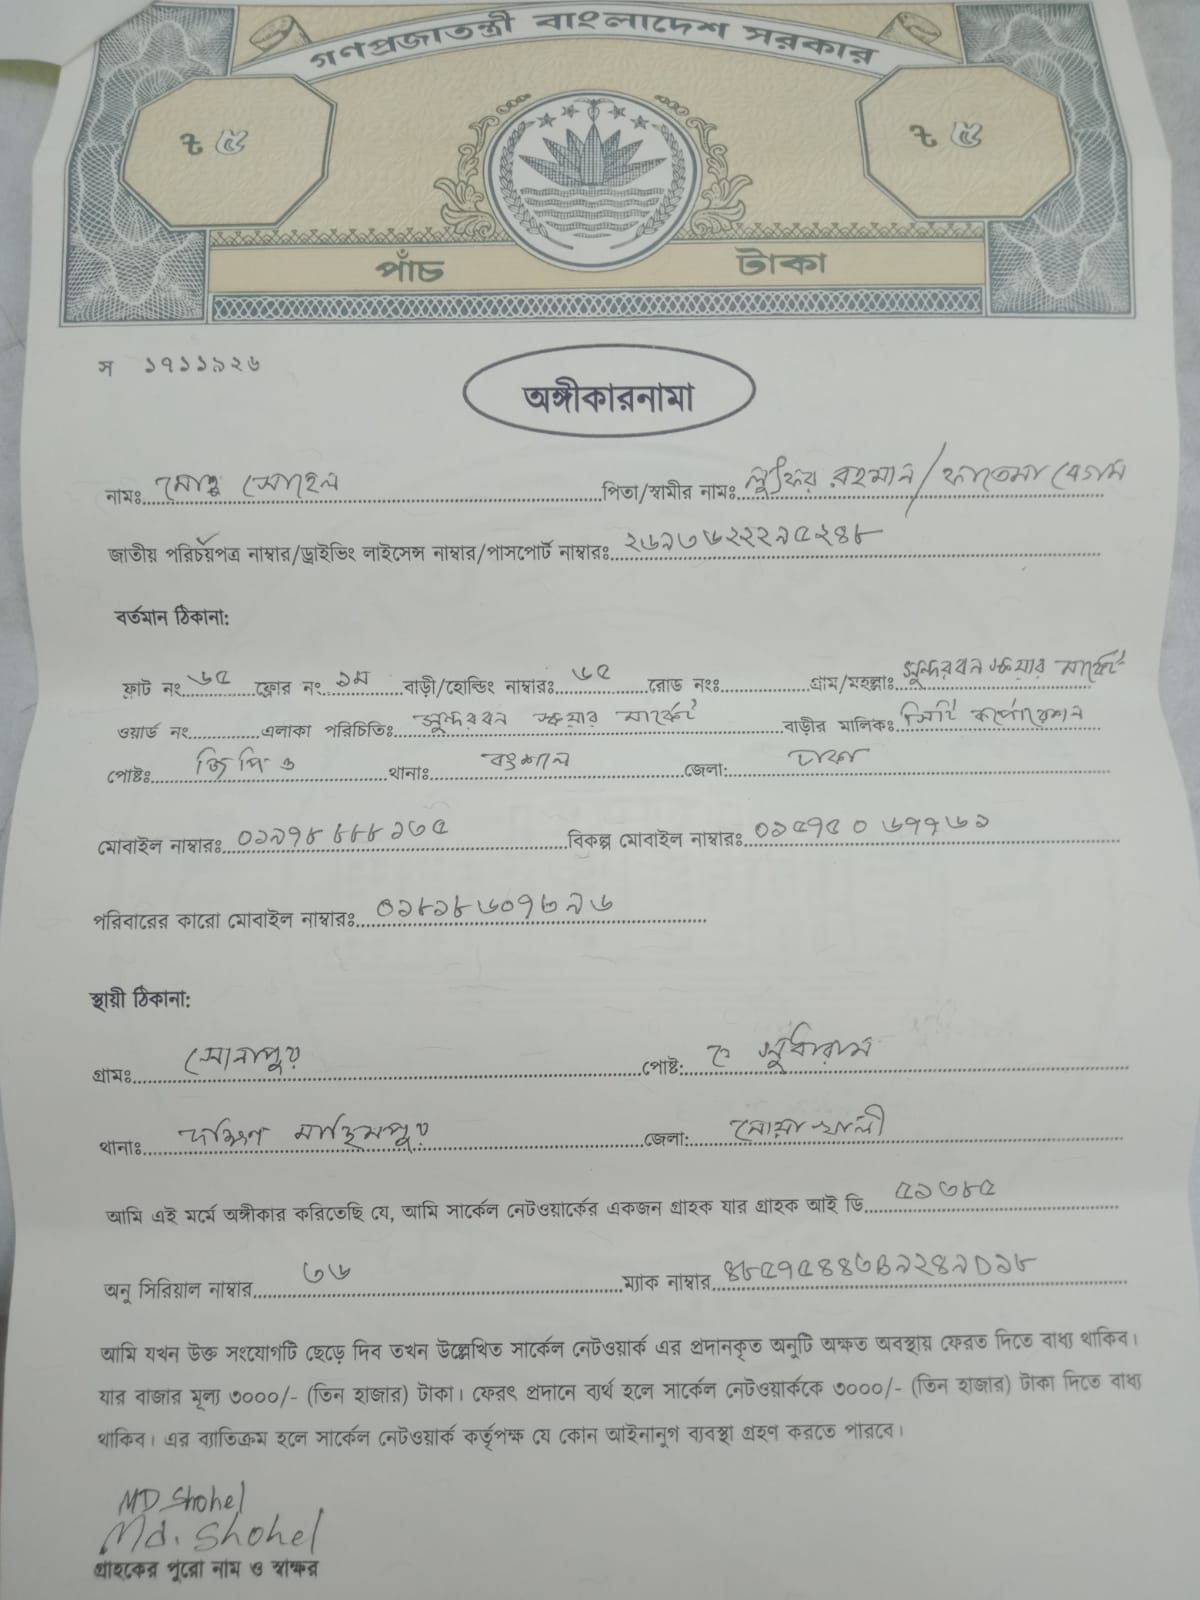 গণপ্রজাতন্ত্রী বাংলাদেশ সরকার
ট ৫ ট ৫
পাঁচ টাকা
স ১৭১১৯২৬
অঙ্গীকারনামা
নামঃ মোঃ সোহেল পিতা/স্বামীর নামঃ লুৎফর রহমান/ফাতেমা বেগম
জাতীয় পরিচয়পত্র নাম্বার/ড্রাইভিং লাইসেন্স নাম্বার/পাসপোর্ট নাম্বারঃ ২৬৯৩৬২২২৯৫২৪৮
বর্তমান ঠিকানা:
ফ্লাট নং ৬৫ ফ্লোর নং ১ম বাড়ী/হোল্ডিং নাম্বারঃ ৬৫ রোড নংঃ গ্রাম/মহল্লাঃ সুন্দরবন স্কয়ার মার্কেট
ওয়ার্ড নং এলাকা পরিচিতিঃ সুন্দরবন স্কয়ার মার্কেট বাড়ীর মালিকঃ সিটি কর্পোরেশন
পোষ্টঃ জি পি ও থানাঃ বংশাল জেলা: ঢাকা
মোবাইল নাম্বারঃ ০১৯৭৮৮৮৮১৩৫ বিকল্প মোবাইল নাম্বারঃ ০১৫৭৫০৬৭৭৬১
পরিবারের কারো মোবাইল নাম্বারঃ
স্থায়ী ঠিকানা:
গ্রামঃ সোনাপুর পোষ্ট: সুধারাম
থানাঃ দক্ষিণ মহিমপুর জেলা: নোয়াখালী
আমি এই মর্মে অঙ্গীকার করিতেছি যে, আমি সার্কেল নেটওয়ার্কের একজন গ্রাহক যার গ্রাহক আই ডি ৫১৩৮৫
অনু সিরিয়াল নাম্বার ৩৬ ম্যাক নাম্বার
আমি যখন উক্ত সংযোগটি ছেড়ে দিব তখন উল্লেখিত সার্কেল নেটওয়ার্ক এর প্রদানকৃত অনুটি অক্ষত অবস্থায় ফেরত দিতে বাধ্য থাকিব।
যার বাজার মূল্য ৩০০০/- (তিন হাজার) টাকা। ফেরৎ প্রদানে ব্যর্থ হলে সার্কেল নেটওয়ার্ককে ৩০০০/- (তিন হাজার) টাকা দিতে বাধ্য
থাকিব। এর ব্যতিক্রম হলে সার্কেল নেটওয়ার্ক কর্তৃপক্ষ যে কোন আইনানুগ ব্যবস্থা গ্রহণ করতে পারবে।
MD Shohel
Md. Shohel
গ্রাহকের পুরো নাম ও স্বাক্ষর